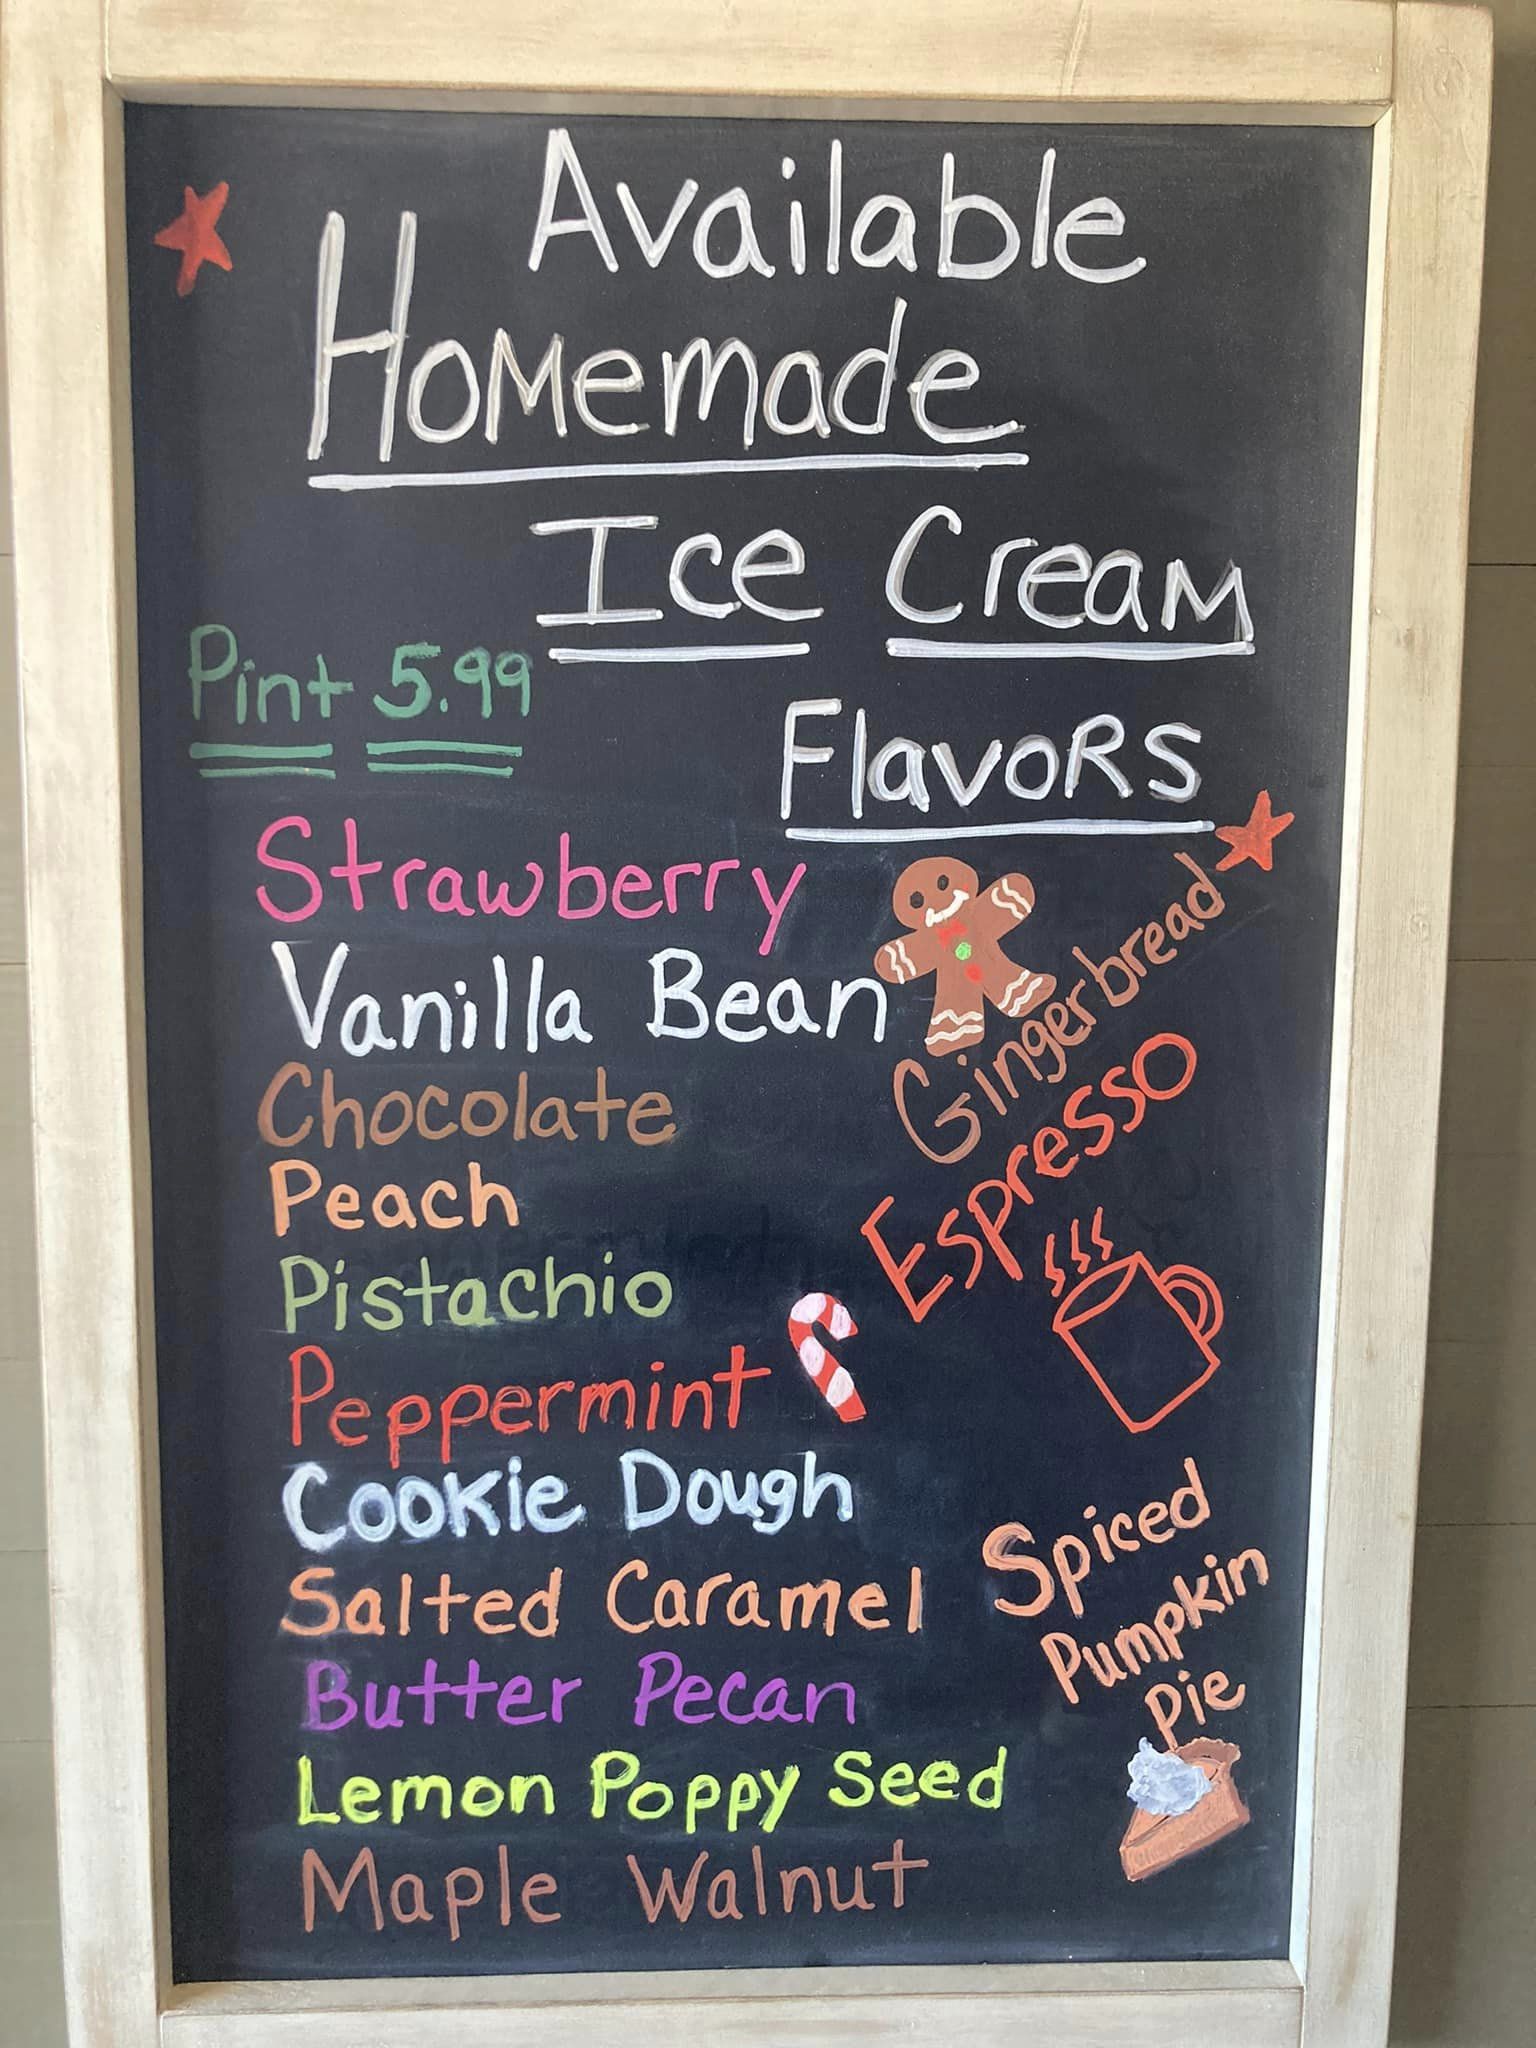 Available
Homemade
Ice Cream
Flavors
Pint 5.99
Strawberry
Vanilla Bean
Chocolate
Peach
Pistachio
Peppermint
Cookie Dough
Salted Caramel
Butter Pecan
Lemon Poppy Seed
Maple Walnut
Gingerbread
Espresso
Spiced
Pumpkin
Pie